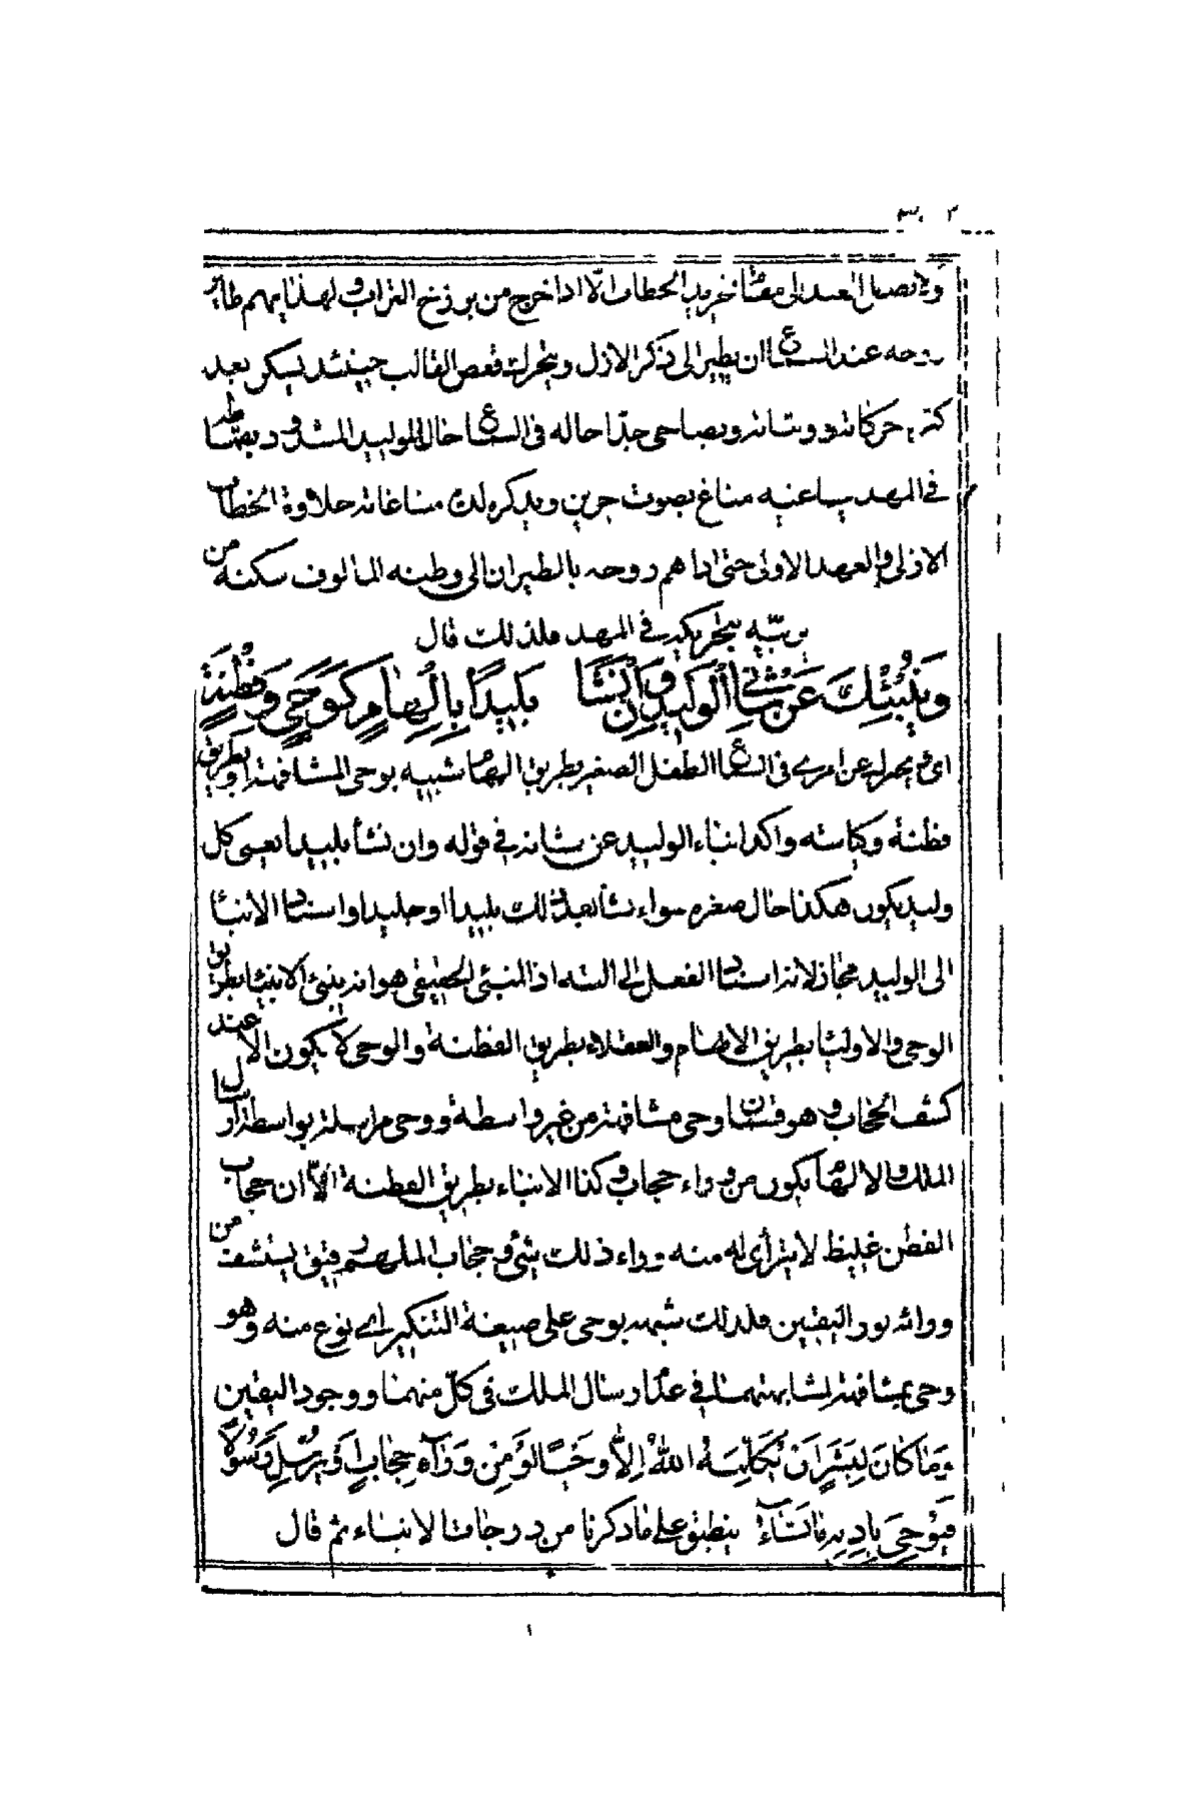 ولا يصل العبد الى مقام تجريد الخطاب الّا اذا خرج من برزخ التراب ولهذا يهم طاير
روحه عند السماع ان يطير الى ذكر الازل ويتحرك قفص القالب حينئذ ليسكن بعد
حركاته ووشانه ويضاهى جدّا حاله فى السماع حال الوليد المشدود بقماط
فى المهد يناغيه مناغ بصوت حزين ويذكره لذت مناغاته حلاوة الخطاب
الازلى والعهد الاولى حتى اذا هم روحه بالطيران الى وطنه المالوف سكنه من
يربّيه بتحريكه فى المهد فلذلك قال
وَيُنْبِئُكَ عَنْ شَأْنِي الْوَلِيدُ وَاِنْ نَشَا بَلِيدًا بِاِلْهَامٍ كَوَحْىٍ وَفِطْنَةٍ
اى يخبرك عن امرى فى السماع الطفل الصغير بطريق الهام شبيه بوحى المشافهة او بطريق
فطنة وكياسته واكد انباء الوليد عن شانه فى قوله وان نشأ بليدا يعنى كل
وليد يكون هكذا حال صغره سواء نشأ بعد ذلك بليدا او جليدا واسناد الانباء
الى الوليد مجاز لانه اسناد الفعل الى السه اذ المنبئ الحقيقى هو انه ينبئ الانبياء بطريق
الوحى والاولياء بطريق الالهام والعقلاء بطريق الفطنة والوحى لا يكون الا عند
كشف الحجاب وهو قسمان وحى مشافهة من غير واسطة ووحى مراسلة بواسطة ارسال
الملك والالهام يكون من وراء حجاب وكذا الانباء بطريق الفطنة الّا ان حجاب
الفطن غليظ لا يترأى له منه وراء ذلك شئ وحجاب الملهم رقيق يستشف من
ورائه نور اليقين فلذلك شبهه بوحى على صيغة التنكير اى نوع منه وهو
وحى مشافهة لمشابهتهما فى عدم ارسال الملك فى كلّ منهما ووجود اليقين
وَمَا كَانَ لِبَشَرٍ اَنْ يُكَلِّمَهُ اللهُ اِلَّا وَحْيًا اَوْ مِنْ وَرَآءِ حِجَابٍ اَوْ يُرْسِلَ رَسُولًا
فَيُوحِىَ بِاِذْنِهِ مَا يَشَآءُ ينطبق على ما ذكرنا من درجات الانباء ثم قال